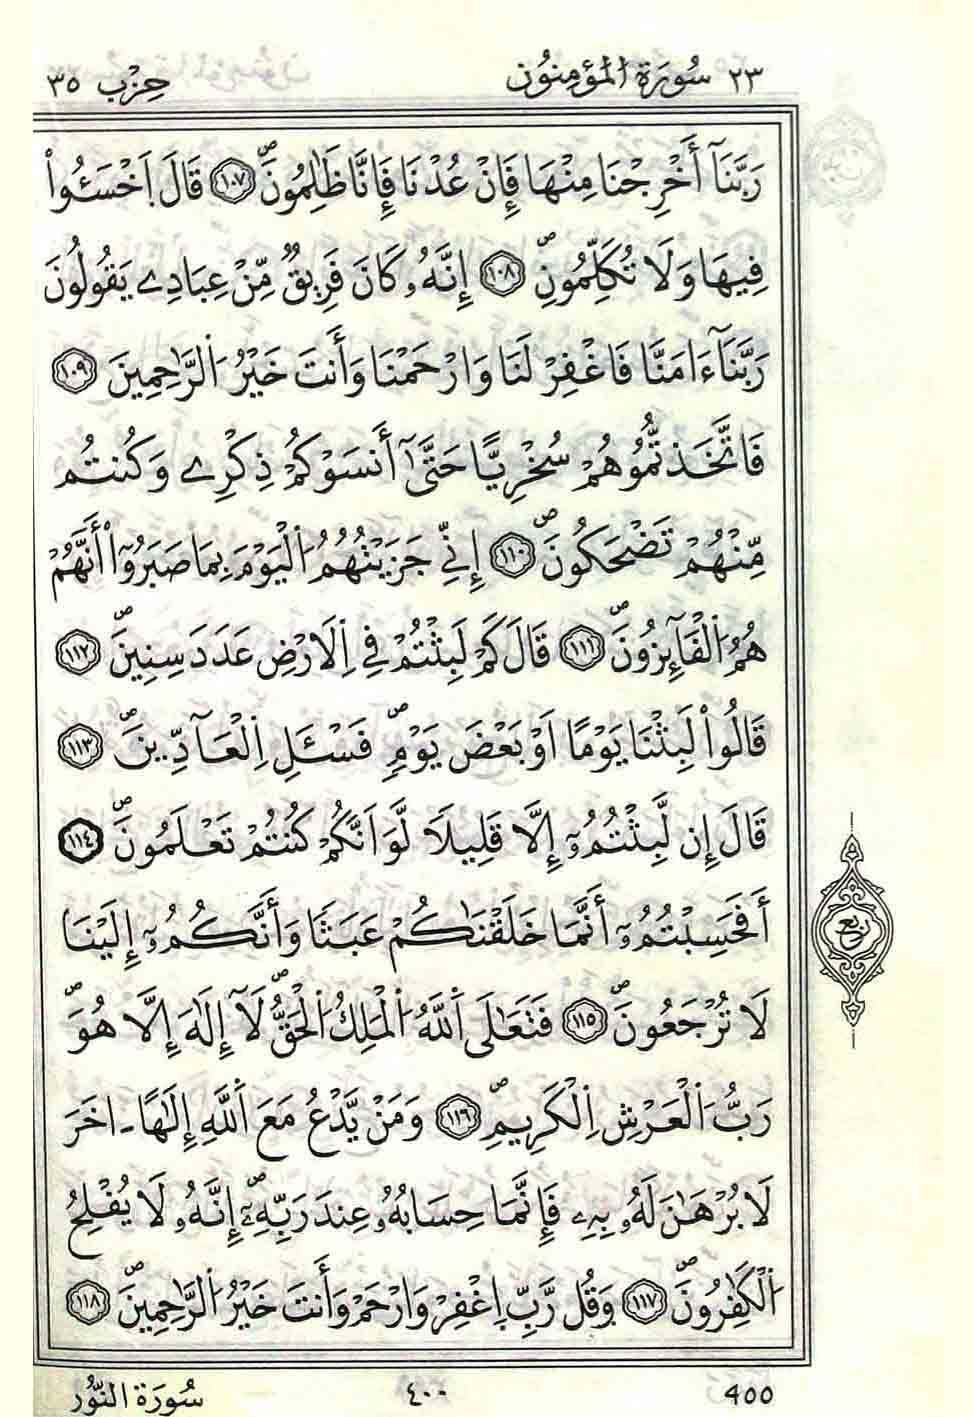 ٢٣ سُورَةُ الْمُؤْمِنُونَ حِزْب ٣٥
رَبَّنَآ أَخْرِجْنَا مِنْهَا فَإِنْ عُدْنَا فَإِنَّا ظَٰلِمُونَۖ ١٠٧ قَالَ اَخْسَـُٔواْ
فِيهَا وَلَا تُكَلِّمُونِۖ ١٠٨ إِنَّهُۥ كَانَ فَرِيقٌ مِّنْ عِبَادِے يَقُولُونَ
رَبَّنَآ ءَامَنَّا فَاغْفِرْ لَنَا وَارْحَمْنَا وَأَنتَ خَيْرُ اُ۬لرَّٰحِمِينَ ١٠٩
فَاتَّخَذتُّمُوهُمْ سُخْرِيًّا حَتَّىٰٓ أَنسَوْكُمْ ذِكْرِے وَكُنتُم
مِّنْهُمْ تَضْحَكُونَۖ ١١٠ إِنِّے جَزَيْتُهُمُ اُ۬لْيَوْمَ بِمَا صَبَرُوٓاْ أَنَّهُمْ
هُمُ اُ۬لْفَآئِزُونَۖ ١١١ قَالَ كَمْ لَبِثْتُمْ فِے اِ۬لَارْضِ عَدَدَ سِنِينَۖ ١١٢
قَالُواْ لَبِثْنَا يَوْمًا اَوْ بَعْضَ يَوْمٍۖ فَسْـَٔلِ اِ۬لْعَآدِّينَۖ ١١٣
قَالَ إِن لَّبِثْتُمُۥٓ إِلَّا قَلِيلًا لَّوَ اَنَّكُمْ كُنتُمْ تَعْلَمُونَۖ ١١٤
أَفَحَسِبْتُمُۥٓ أَنَّمَا خَلَقْنَٰكُمْ عَبَثًا وَأَنَّكُمُۥٓ إِلَيْنَا
لَا تُرْجَعُونَۖ ١١٥ فَتَعَٰلَى اَ۬للَّهُ اُ۬لْمَلِكُ اُ۬لْحَقُّۖ لَآ إِلَٰهَ إِلَّا هُوَۖ
رَبُّ اُ۬لْعَرْشِ اِ۬لْكَرِيمِۖ ١١٦ وَمَنْ يَّدْعُ مَعَ اَ۬للَّهِ إِلَٰهًا ـاخَرَ
لَا بُرْهَٰنَ لَهُۥ بِهِۦ فَإِنَّمَا حِسَابُهُۥ عِندَ رَبِّهِۦٓۖ إِنَّهُۥ لَا يُفْلِحُ
اُ۬لْكَٰفِرُونَۖ ١١٧ وَقُل رَّبِّ اِ۪غْفِرْ وَارْحَمْ وَأَنتَ خَيْرُ اُ۬لرَّٰحِمِينَۖ ١١٨
ربع
٤٥٥ ٤٠٠ سُورَةُ النُّور